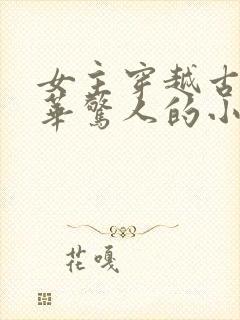 女主穿越古
华惊人的小
花嘎